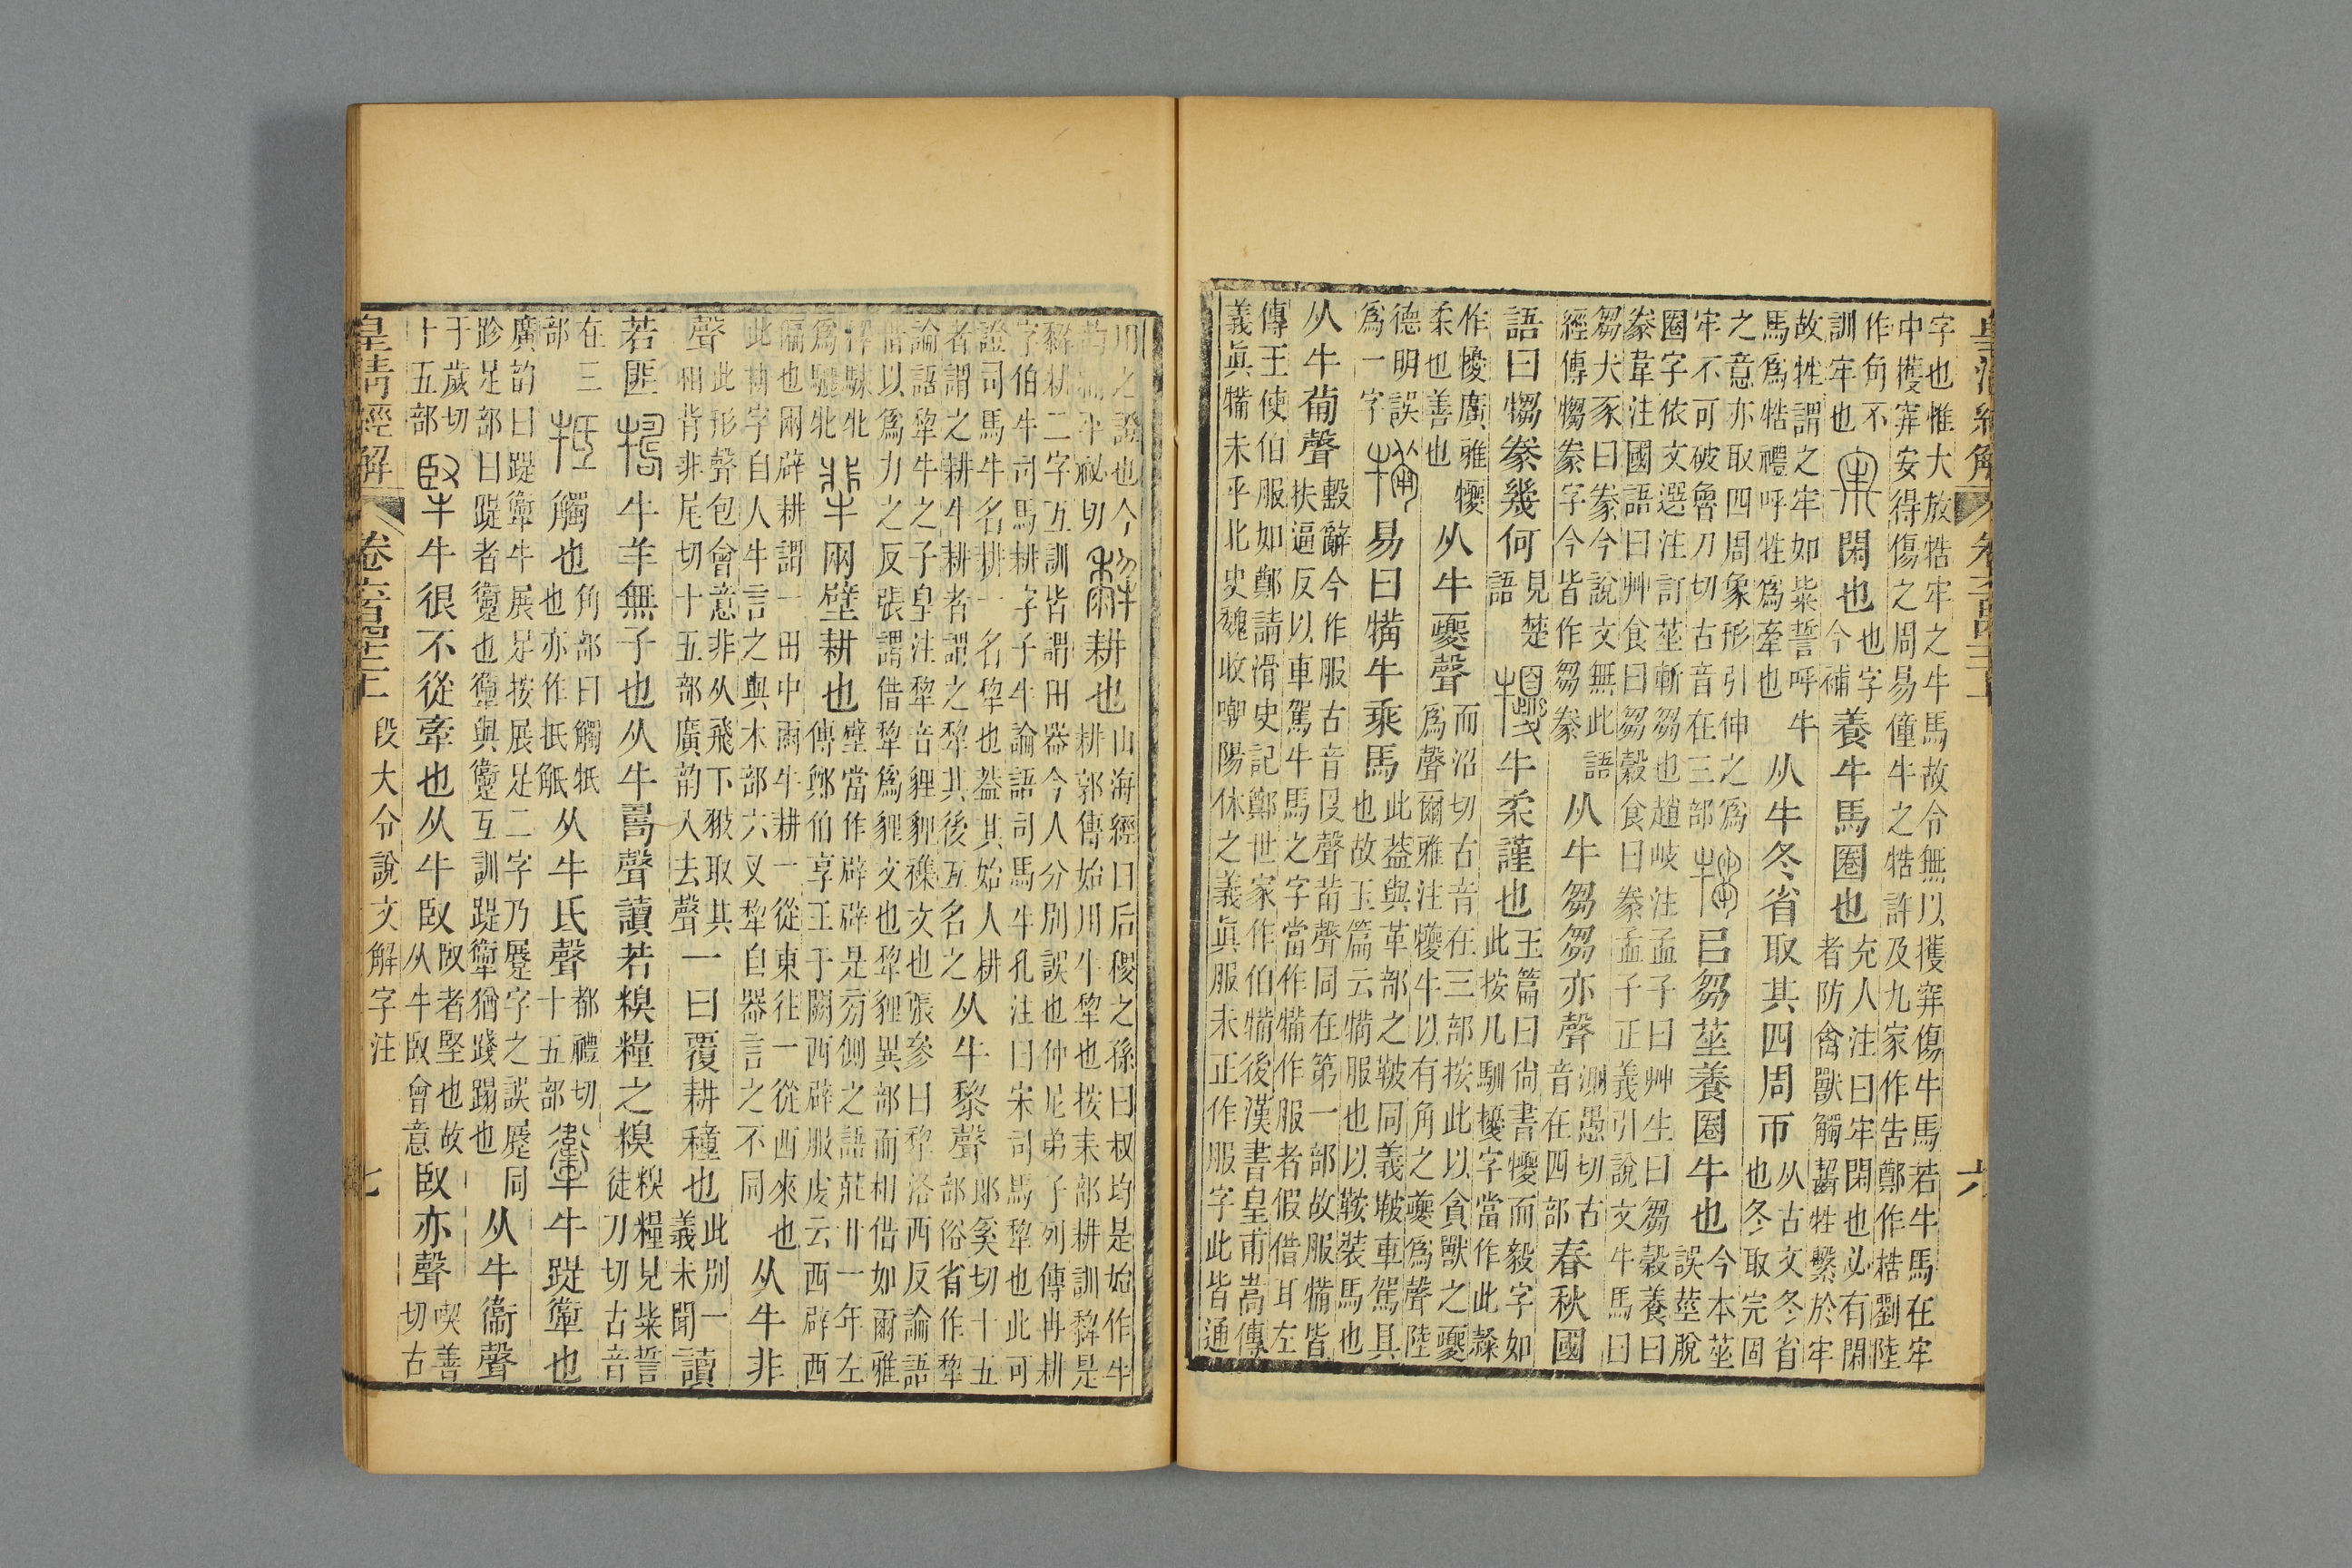 皇清經解 六
字也惟大放牿牢之牛馬故令無以擭穽傷牛馬若牛馬在牢
中擭穽安得傷之周易僮牛之牿許及九家作告鄭作梏劉陸
作角不訓牢也 牢 閑也 也字今補 養牛馬圈也 充人注曰牢閑也必有閑者防禽獸觸齧牲繫於牢
故牲謂之牢如粊誓呼牛馬爲牿禮呼牲爲牽也 从牛冬省取其四周帀 从古文冬省也冬取完固
之意亦取四周象形引伸之爲牢不可破魯刀切古音在三部 犓 㠯芻莝養圈牛也 今本莝誤莖脫
圈字依文選注訂莝斬芻也趙岐注孟子曰艸生曰芻穀養曰
豢韋注國語曰艸食曰芻穀食曰豢孟子正義引說文牛馬曰
芻犬豕曰豢今說文無此語經傳犓豢字今皆作芻豢 从牛芻芻亦聲 測愚切古音在四部 春秋國
語曰犓豢幾何 見楚語 犪 牛柔謹也 玉篇曰尙書犪而毅字如此按凡馴擾字當作此
作犪廣雅犪柔也善也 从牛夒聲 而沼切古音在三部按此以貪獸之夒爲聲爾雅注犪牛以有角之夔爲聲陸
德明誤爲一字 犕 易曰犕牛乘馬 此葢與革部之鞁同義鞁車駕具也故玉篇云犕服也以鞍裝馬也
从牛𤰇聲 繫辭今作服古音𠬝聲𤰇聲同在第一部故服犕皆扶逼反以車駕牛馬之字當作犕作服者假借耳左
傳王使伯服如鄭請滑史記鄭世家作伯犕後漢書皇甫嵩傳
義眞犕未乎北史魏收嘲陽休之義眞服未正作服字此皆通
用之證也今平祕切 𤛿 耕也 山海經曰后稷之孫曰叔均是始作牛耕郭傳始用牛犂也按耒部耕訓𤛿是
𤛿耕二字互訓皆謂田器今人分別誤也仲尼弟子列傳冉耕
字伯牛司馬耕字子牛論語司馬牛孔注曰宋司馬犂也此可
證司馬牛名耕一名犂也葢其始人耕者謂之耕牛耕者謂之犂其後互名之 从牛黎聲 郎奚切十五部俗省作犂
論語犂牛之子皇注犂音貍貍襍文也張參曰犂洛西反論語
借以爲力之反張謂借犂爲貍文也犂貍異部而相借如爾雅
駼牝爲驪牝 𤙂 兩壁耕也 壁當作辟辟是旁側之語莊廿一年左傳鄭伯享王于闕西辟服虔云西辟西
偏也兩辟耕謂一田中兩牛耕一從東往一從西來也此耕字自人牛言之與木部六叉犂自器言之不同 从牛非
聲 此形聲包會意非从飛下翄取其相背非尾切十五部廣韵入去聲 一曰覆耕種也 此別一義未聞 讀
若匪 𤚟 牛羊無子也从牛𠷎聲讀若糗糧之糗 糗糧見粊誓徒刀切古音
在三部 牴 觸也 角部曰觸牴也亦作抵觝 从牛氐聲 都禮切十五部 𤜂 牛踶𤜂也
廣韵曰踶𤜂牛展足按展足二字乃𨇨字之誤𨇨同跈足部曰踶者躗也躗與𤜂互訓踶𤜂猶踐蹋也 从牛衞聲
于歲切十五部 㹂 牛很不從牽也从牛臤 臤者堅也故从牛臤會意 臤亦聲 喫善切古
皇清經解 卷六百四十二 段大令說文解字注 七